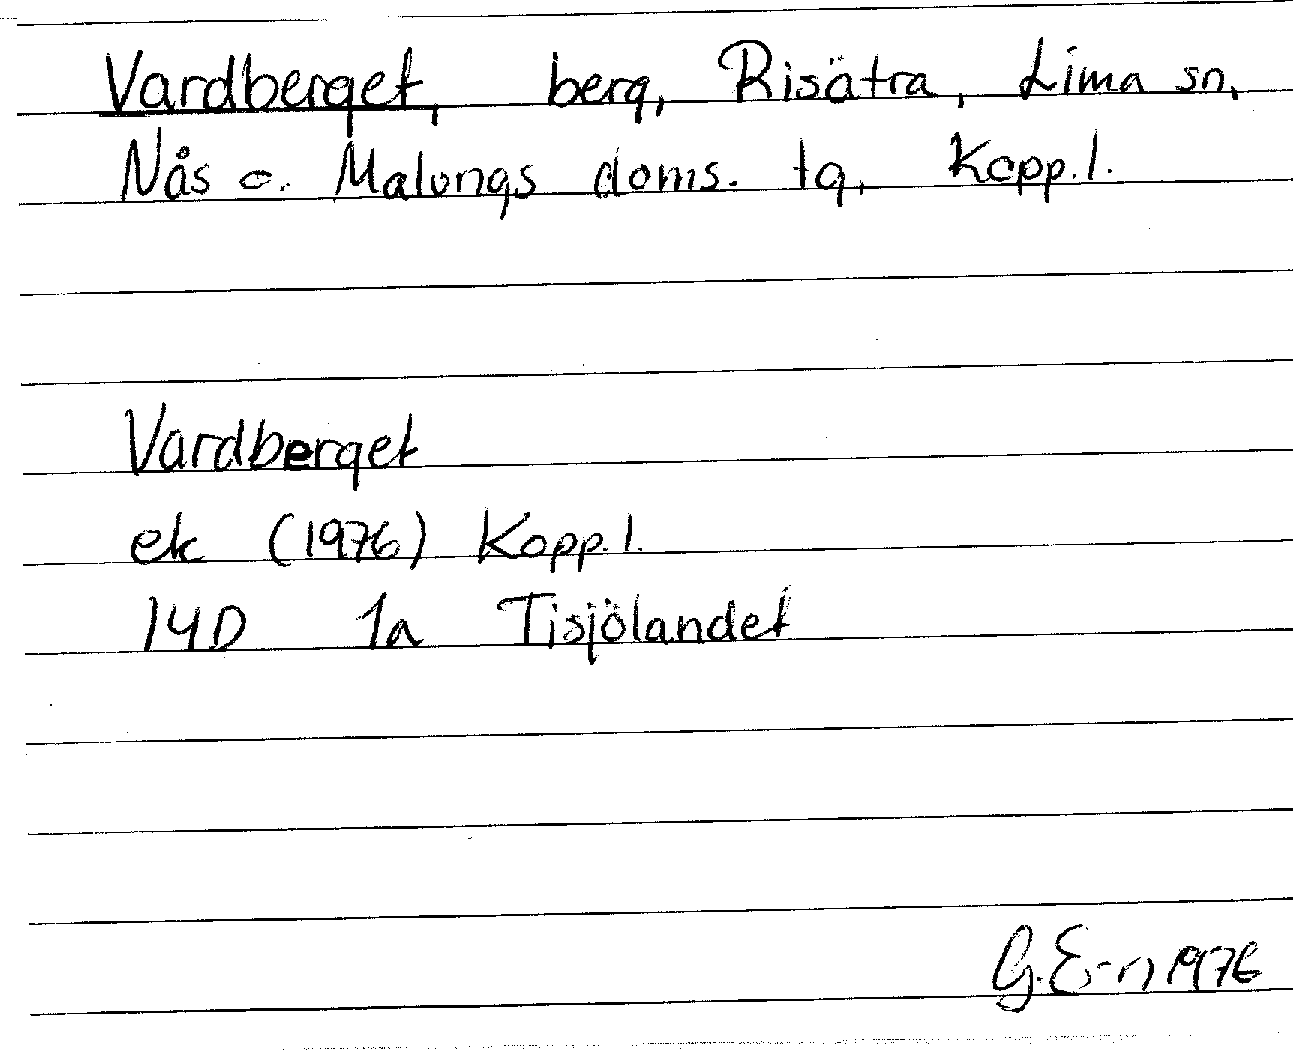 Vardberget, berg, Risätra, Lima sn,
Nås o. Malungs doms. tg, Kopp.l.
Vardberget
ek (1976) Kopp.l.
14D 1a Tisjölandet
G.E-n 1976